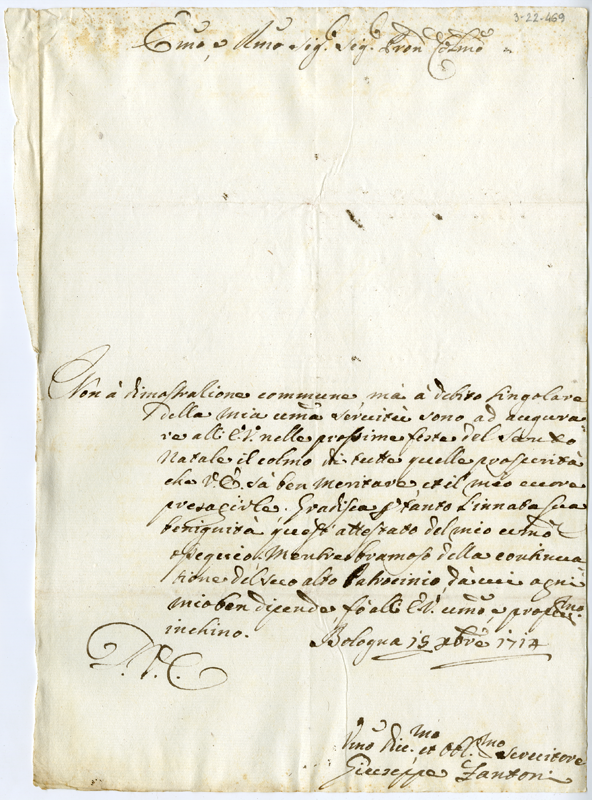 3-22-469
Emo, e Rmo Sig.r Sig.r Pron Colmo
Non à dimostratione commune, mà à debito singolare
della mia uma servitù sono ad augura
re all E.V. nelle prossime feste del Santo
Natale il colmo di tutte quelle prosperità
che V.E. sà ben meritare et il mio cuore
presagirle. Gradisca p tanto l'innata sua
benignità quest'attestato del mio umo
ossequio. Mentre bramoso della continua
tione del suo alto Patrocinio, dà cui ogni
mio ben dipende, fò all E.V. umo, e profmo
inchino.
Bologna 15 Xbre 1714
D.V.E.
Umo Die.mo et Obl.mo Servitore
Giuseppe Zantoni